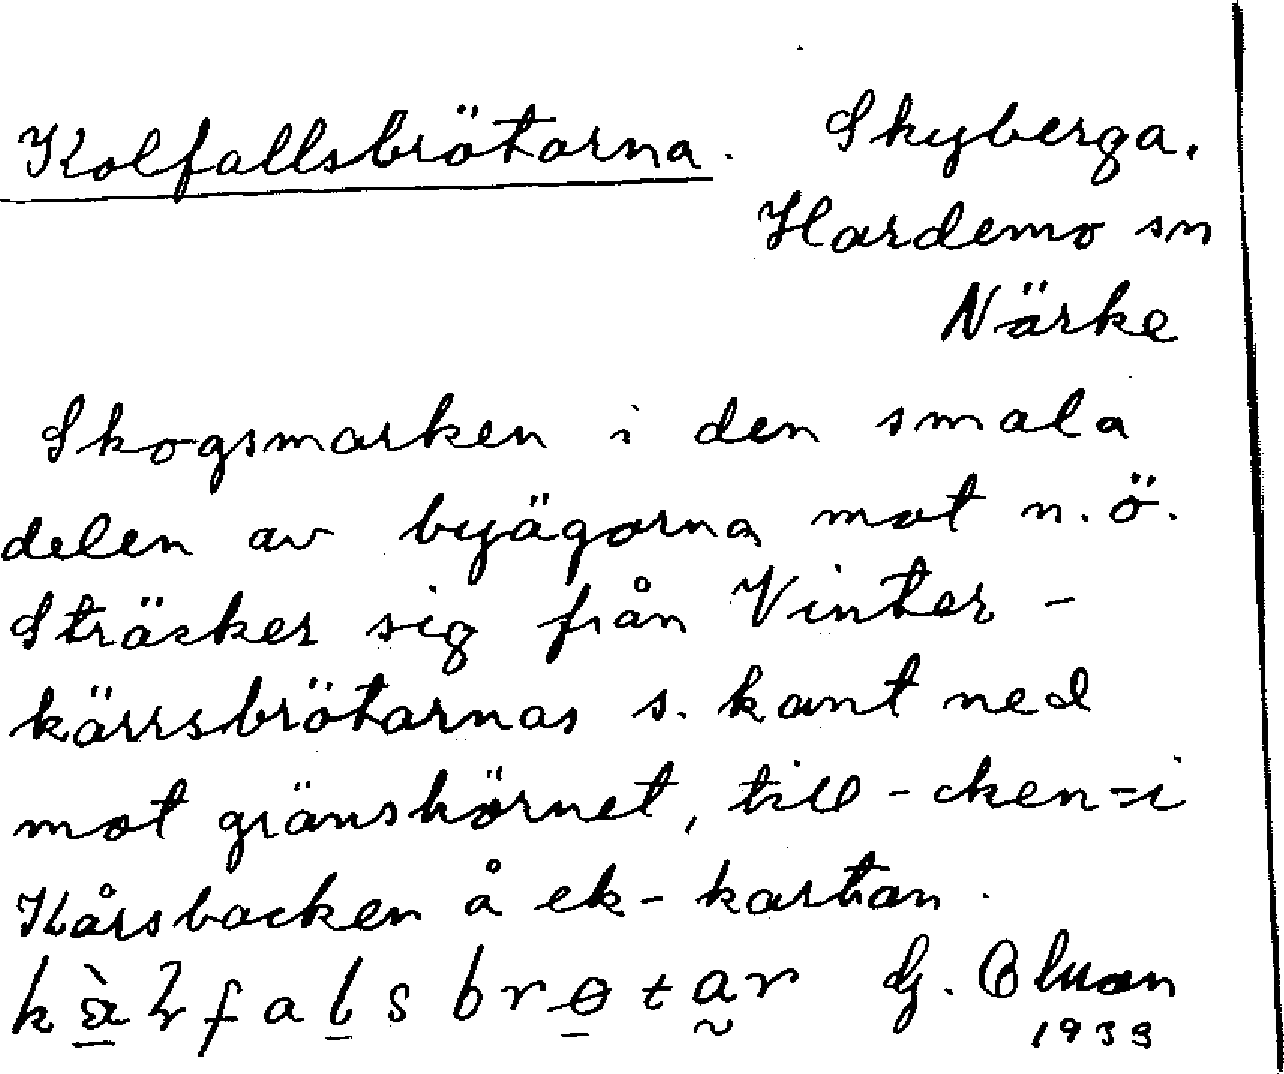 Kolfallsbrötarna. Skyberga.
Hardemo sn
Närke
Skogsmarken i den smala
delen av byägorna mot n.ö.
Sträcker sig från Vinter-
kärrsbrötarnas s. kant ned
mot gränshörnet, till -cken- i
Kårsbacken å ek-kartan.
G.
193